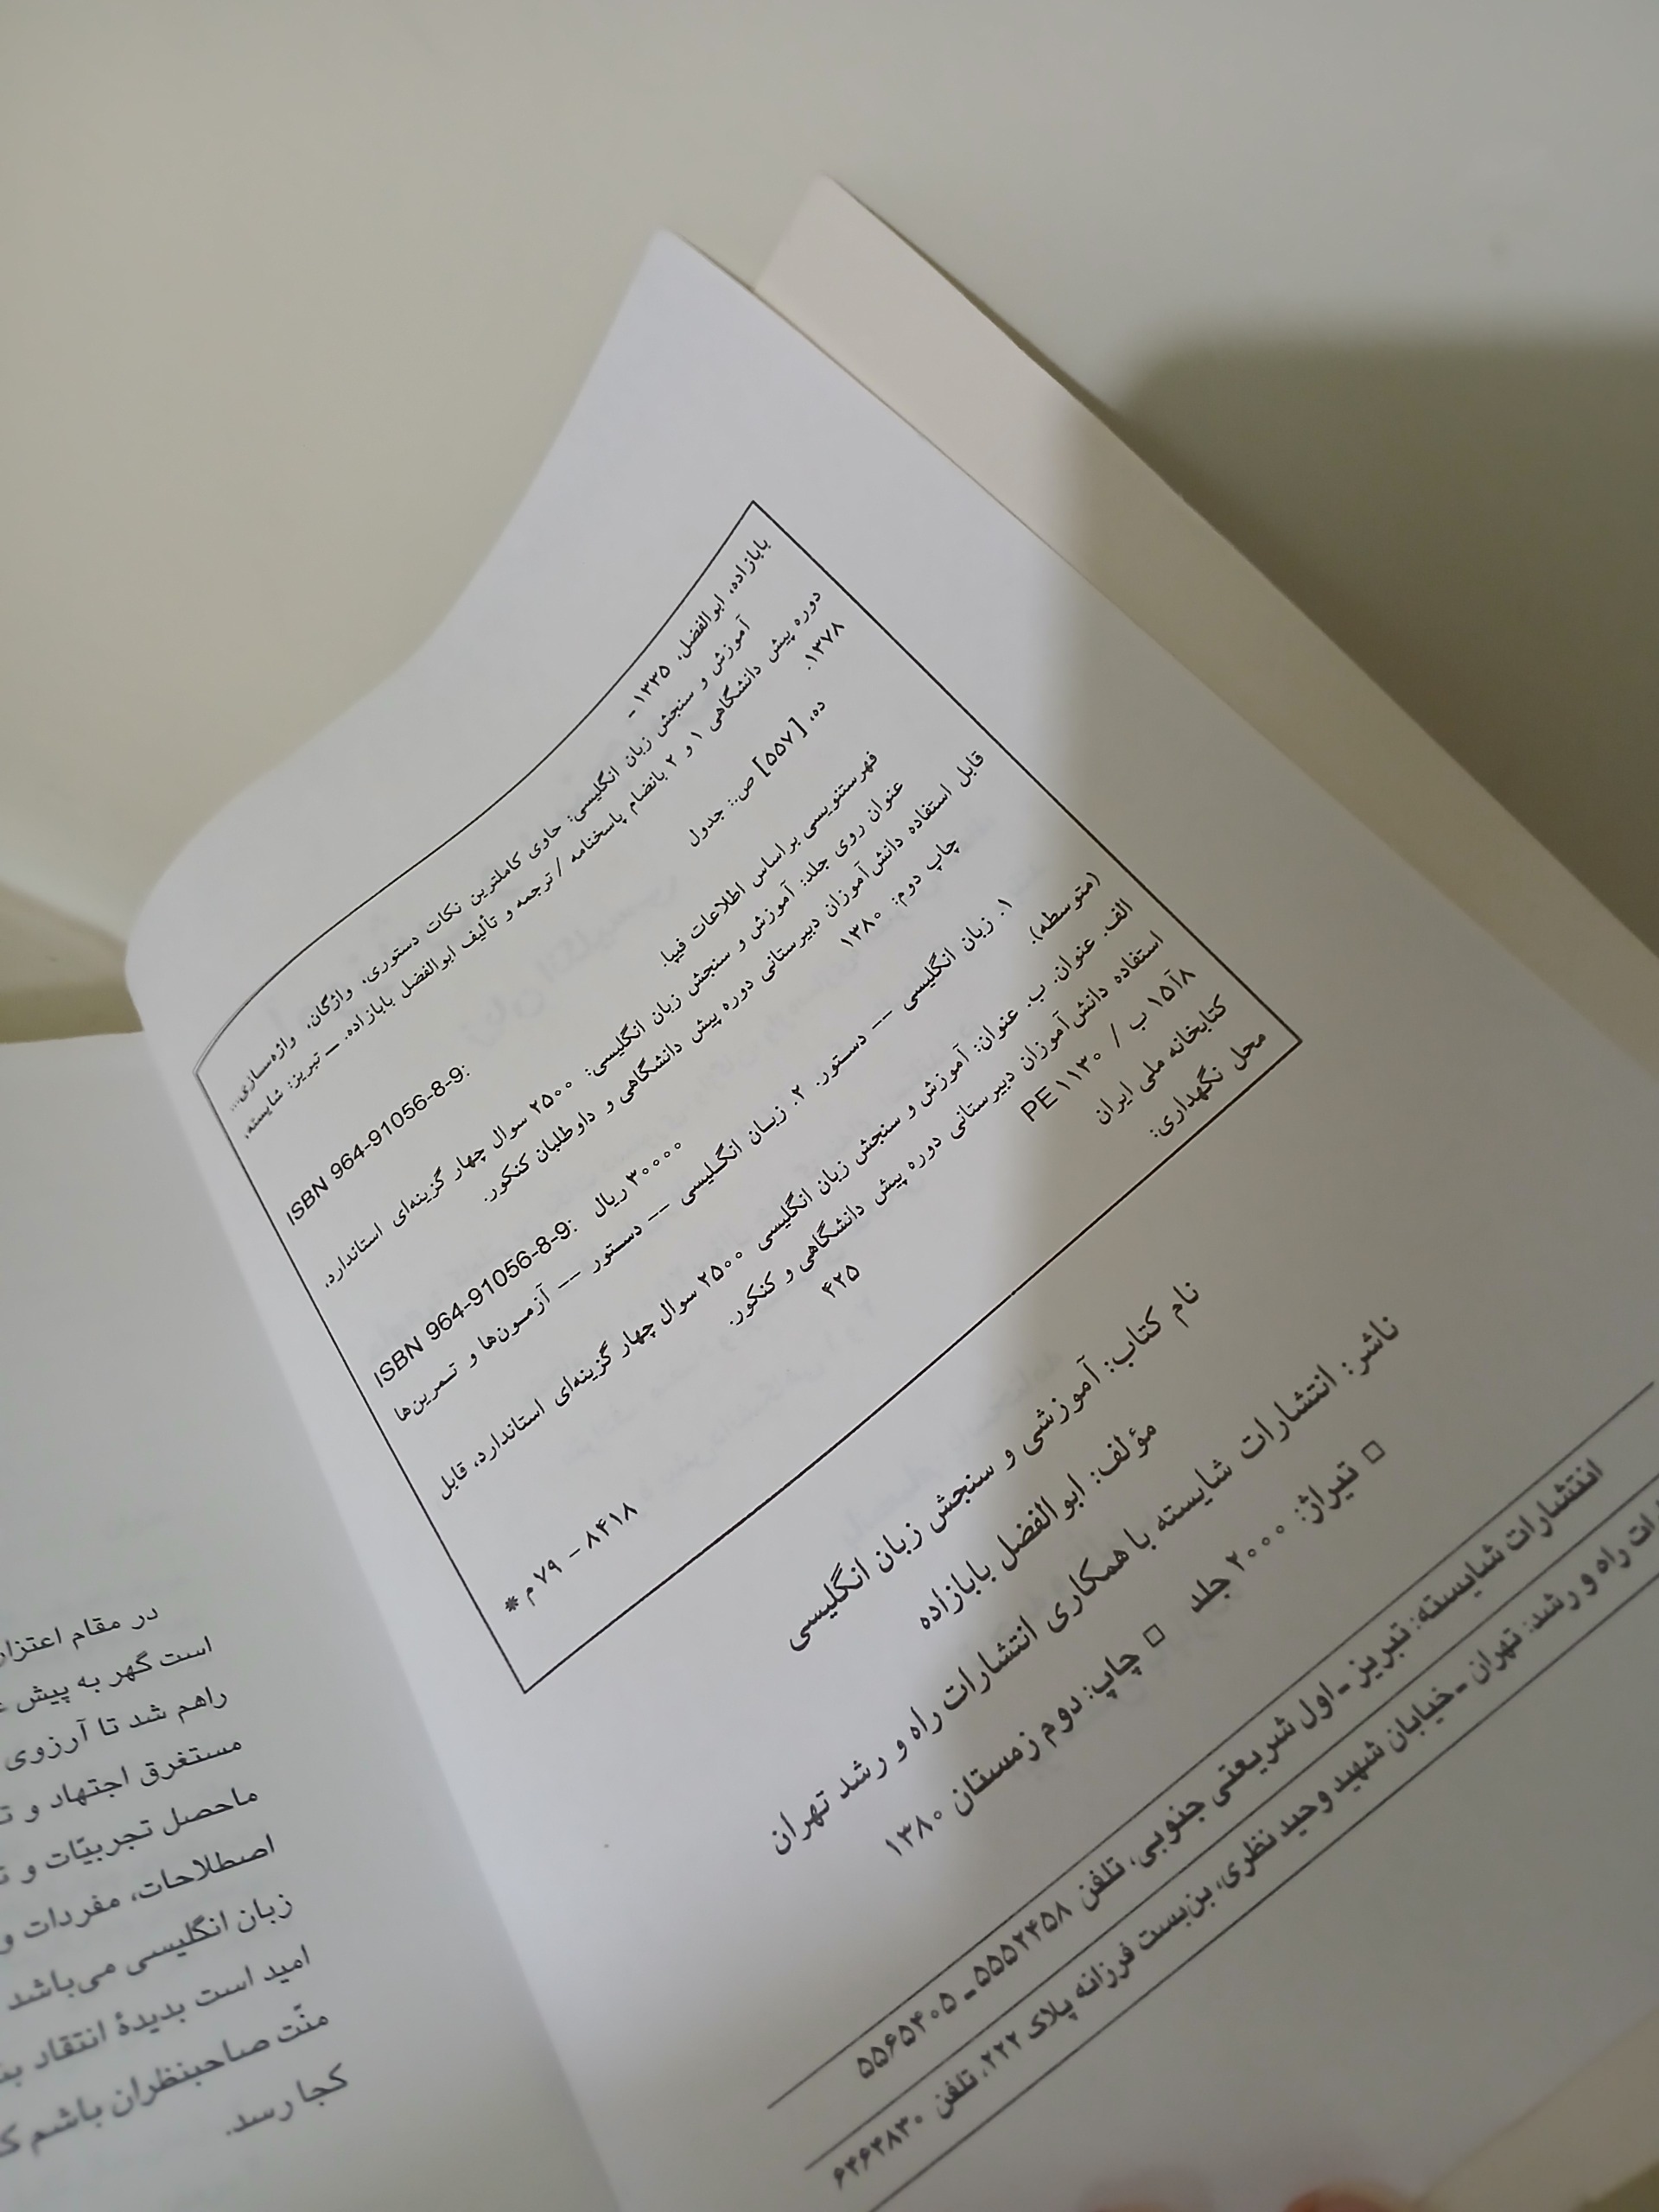 بابازاده، ابوالفضل، ۱۳۳۵ -
آموزش و سنجش زبان انگلیسی: حاوی کاملترین نکات دستوری، واژگان، واژه‌سازی...
دوره پیش دانشگاهی ۱ و ۲ بانضام پاسخنامه / ترجمه و تألیف ابوالفضل بابازاده. ــ تبریز: شایسته،
۱۳۷۸.
ده، [۵۵۷] ص.: جدول
ISBN 964-91056-8-9:
فهرستنویسی براساس اطلاعات فیپا.
عنوان روی جلد: آموزش و سنجش زبان انگلیسی: ۲۵۰۰ سوال چهار گزینه‌ای استاندارد،
قابل استفاده دانش‌آموزان دبیرستانی دوره پیش دانشگاهی و داوطلبان کنکور.
چاپ دوم: ۱۳۸۰
ISBN 964-91056-8-9: ۳۰۰۰۰ ریال
۱. زبان انگلیسی -- دستور. ۲. زبان انگلیسی -- دستور -- آزمون‌ها و تمرین‌ها
(متوسطه).
الف. عنوان. ب. عنوان: آموزش و سنجش زبان انگلیسی ۲۵۰۰ سوال چهار گزینه‌ای استاندارد، قابل
استفاده دانش‌آموزان دبیرستانی دوره پیش دانشگاهی و کنکور.
۸آ۱۵ ب / PE ۱۱۳۰
۴۲۵
کتابخانه ملی ایران
۸۴۱۸ – ۷۹ م *
محل نگهداری:
نام کتاب: آموزشی و سنجش زبان انگلیسی
مؤلف: ابوالفضل بابازاده
ناشر: انتشارات شایسته با همکاری انتشارات راه و رشد تهران
□ تیراژ: ۲۰۰۰ جلد □ چاپ: دوم زمستان ۱۳۸۰
انتشارات شایسته: تبریز - اول شریعتی جنوبی، تلفن ۵۵۵۲۴۵۸ - ۵۵۶۵۴۰۵
راه و رشد: تهران - خیابان شهید وحید نظری، بن‌بست فرزانه پلاک ۲۲۲، تلفن ۶۴۶۴۸۳۰
در مقام اعتزار
است گهر به پیش
راهم شد تا آرزوی
مستغرق اجتهاد و
ماحصل تجربیّات و
اصطلاحات، مفردات و
زبان انگلیسی می‌باشد
امید است بدیدهٔ انتقاد
منّت صاحبنظران باشم
کجا رسد.